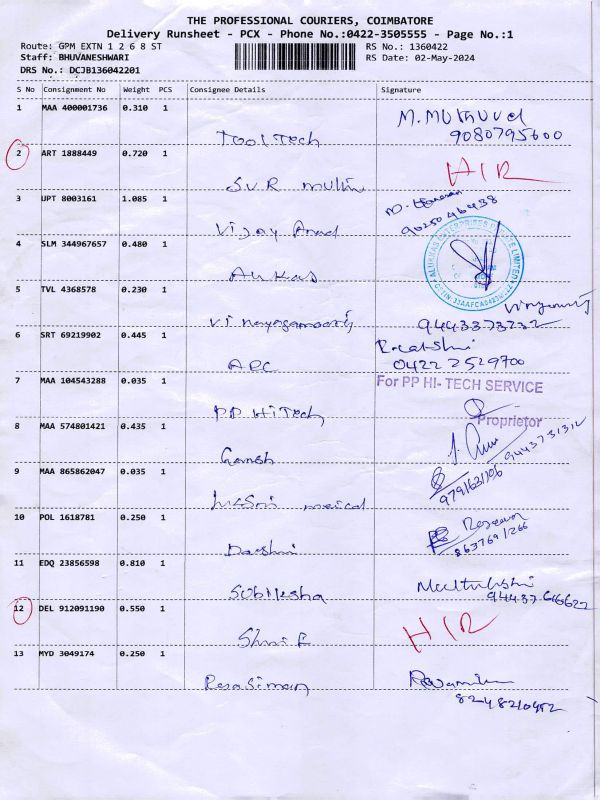 THE PROFESSIONAL COURIERS, COIMBATORE
Delivery Runsheet - PCX - Phone No.:0422-3505555 - Page No.:1
Route: GPM EXTN 1 2 6 8 ST
RS No.: 1360422
Staff: BHUVANESHWARI
RS Date: 02-May-2024
DRS No.: DCJB136042201
S No Consignment No Weight PCS Consignee Details Signature
1 MAA 400001736 0.310 1
M. Muthuvel
9080795600
Tool Tech
2 ART 1888449 0.720 1
HIR
SVR Multi
3 UPT 8003161 1.085 1
9025046438
Vijay Anad
4 SLM 344967657 0.480 1
Alukas
5 TVL 4368578 0.230 1
9443373232
Vinayagamoorty
6 SRT 69219902 0.445 1
0422 2529700
ARC
7 MAA 104543288 0.035 1
For PP HI- TECH SERVICE
PP HiTech
Proprietor
8 MAA 574801421 0.435 1
9443731312
Ganesh
9 MAA 865862047 0.035 1
9791631106
10 POL 1618781 0.250 1
8637691266
Darshni
11 EDQ 23856598 0.810 1
9443766622
12 DEL 912091190 0.550 1
HIR
13 MYD 3049174 0.250 1